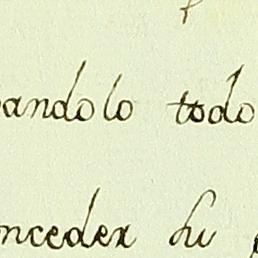 andolo todo
nceder su